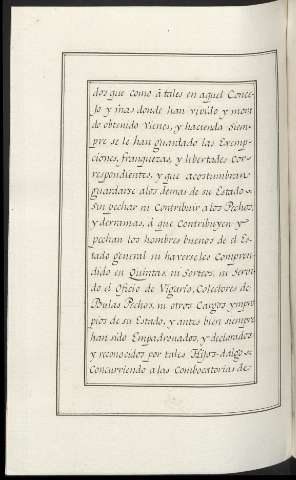 dos que como á tales en aquel Conce-
jo y mas donde han vivido y mora
do obtenido vienes, y hacienda Siem-
pre se le han guardado las Exemp-
ciones, franquezas, y libertades Cor-
respondientes, y que acostumbran
guardarse alos demas de su Estado
Sin pechar ni Contribuir a los Pechos,
y derramas, á que Contribuyen y
pechan los hombres buenos de el Es-
tado general ni haverseles Compren-
dido en Quintas, ni Sorteos, ni Servi-
do el Oficio de Vigario, Colectores de
Bulas Pechos, ni otros Cargos ympro
pios de su Estado, y antes bien siempre
han sido Empadronados, y declarados
y reconocidos por tales Hijos-dalgo
Concurriendo a las Combocatorias de